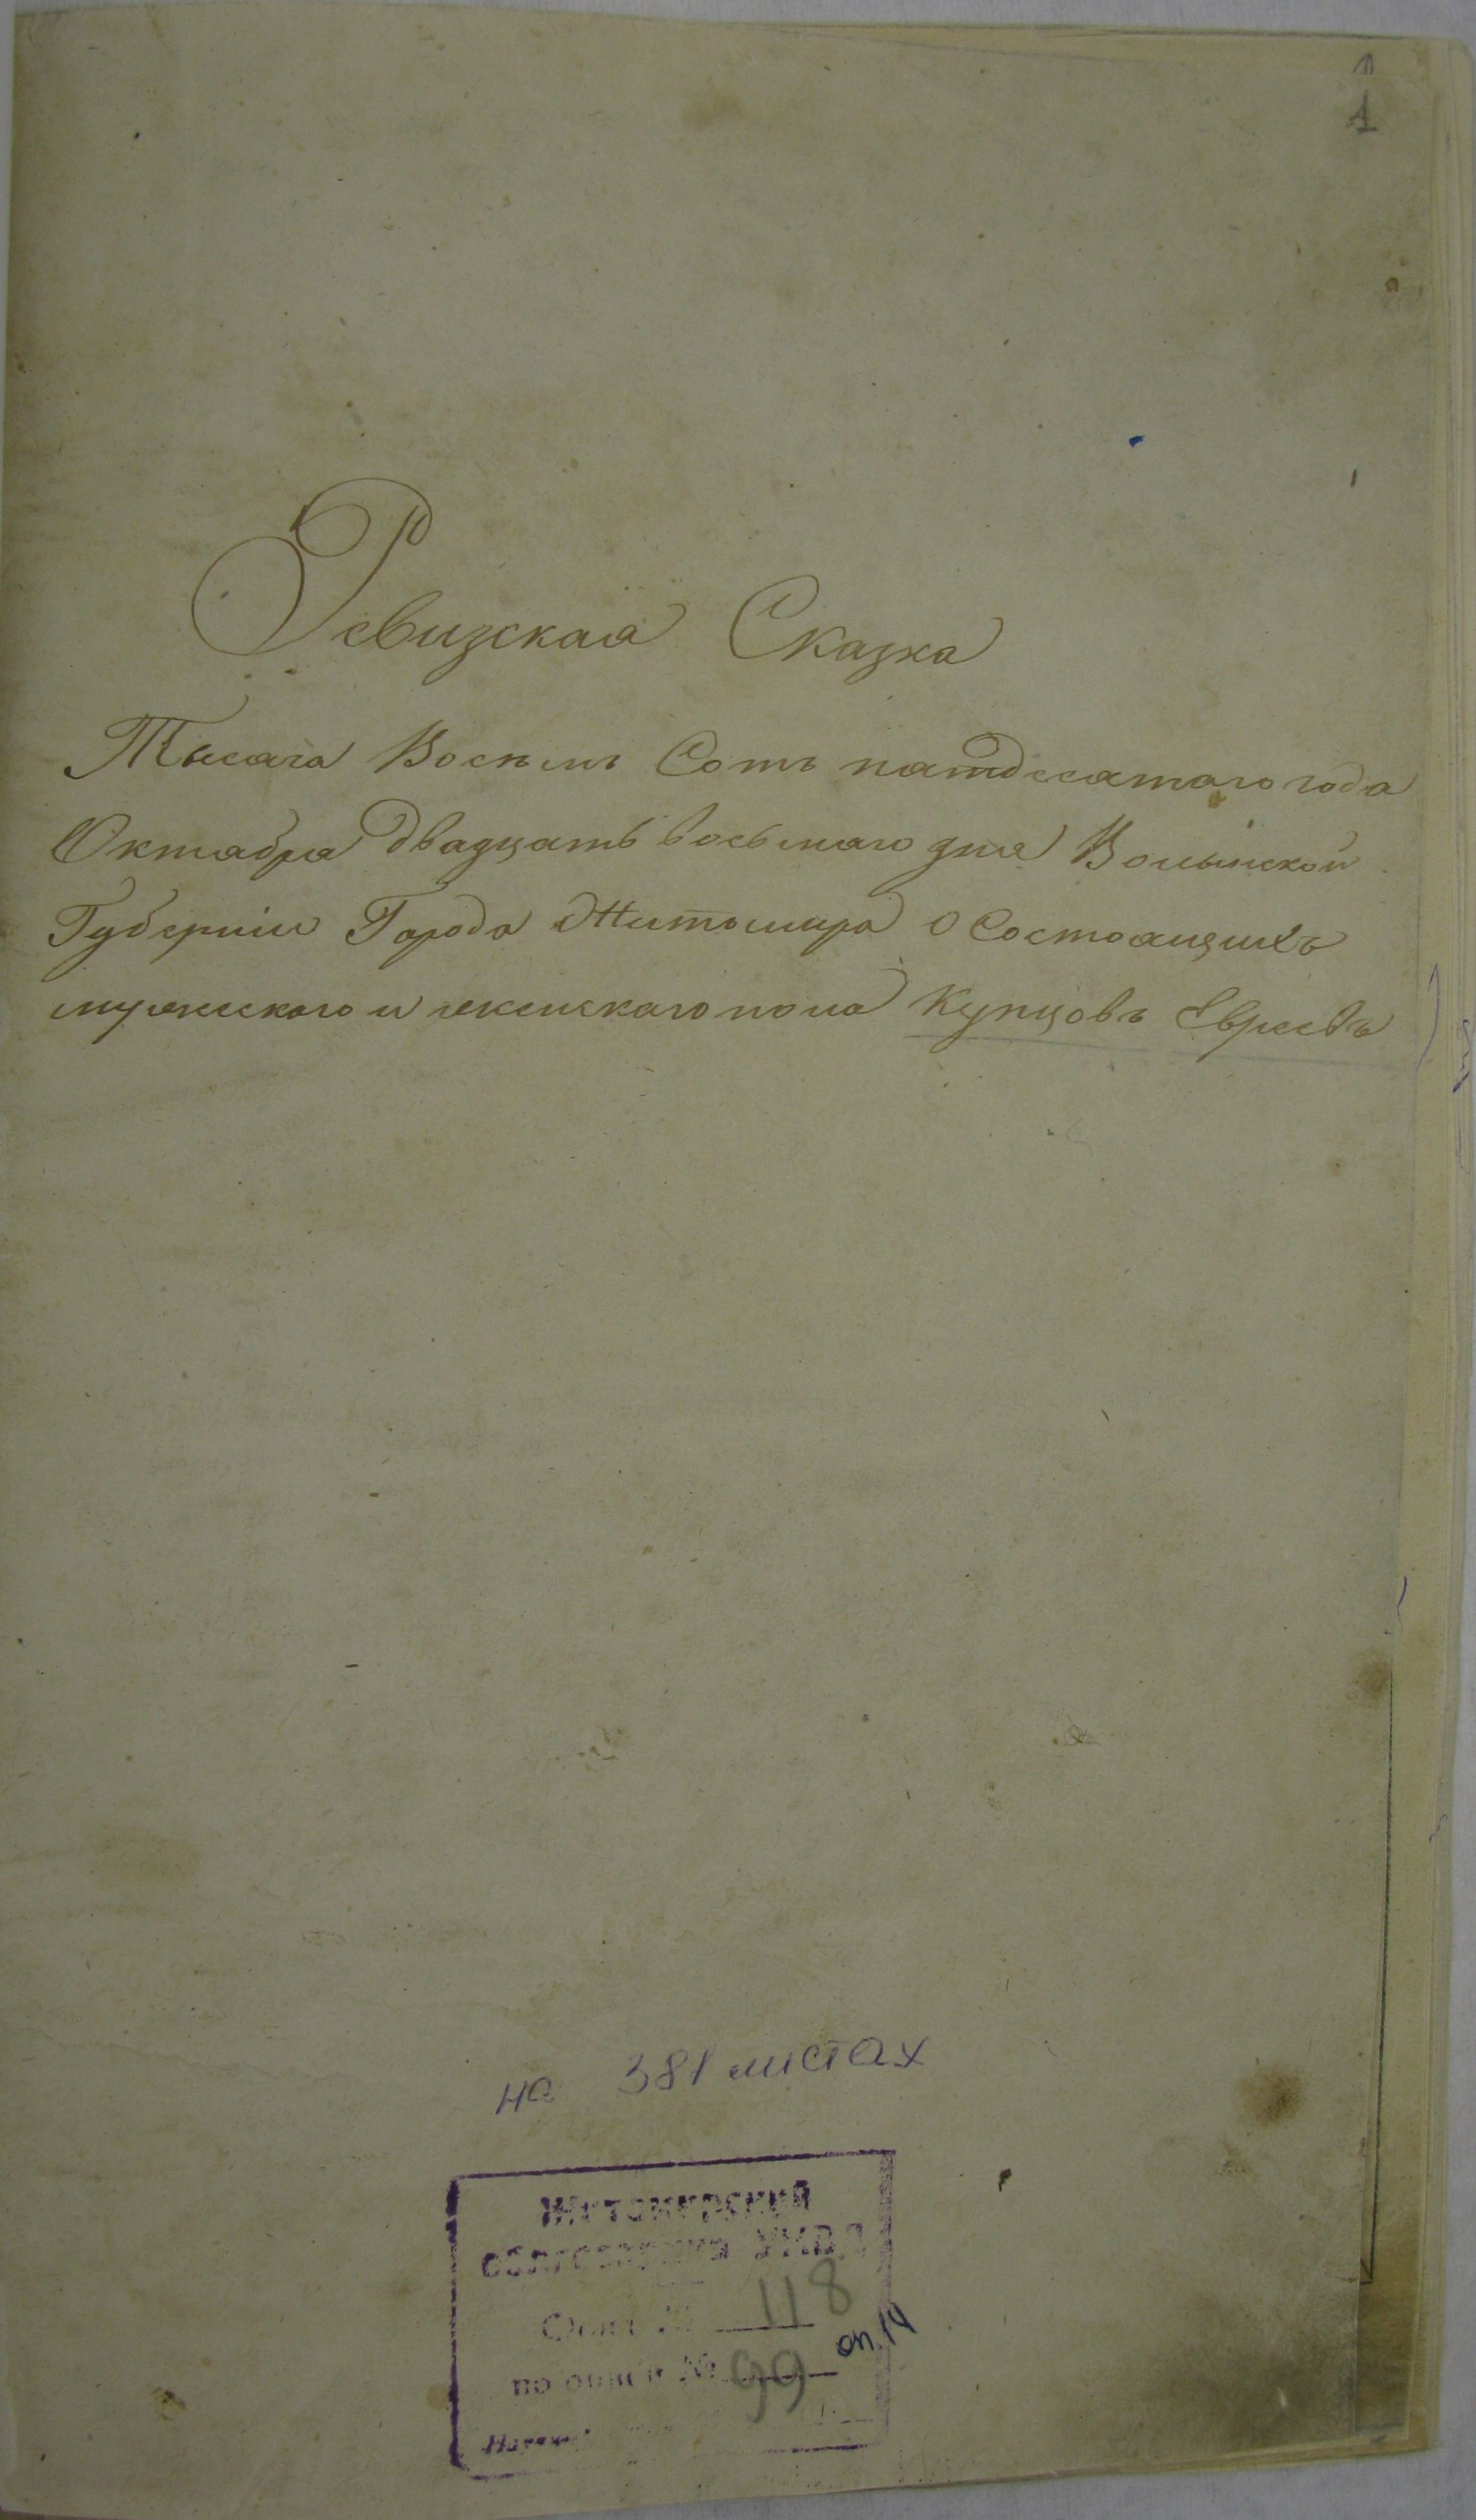 1
1
Ревизская Сказка
Тысяча Восемь Сотъ пятдесятаго года
Октября двадцать восьмаго дня Волынской
Губерніи Города Житомира о Состоящихъ
мужескаго и женскаго пола Купцовъ Евреевъ
на 381 листах
ЖИТОМИРСКИЙ
ОБЛГОСАРХИВ УНКВД
Фонд № 118
оп. 14
по описи № 99